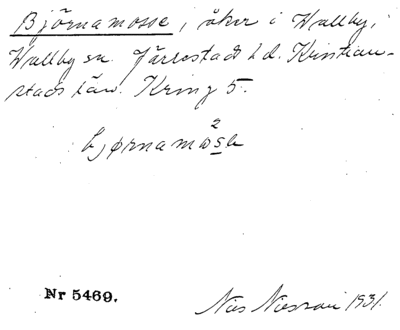 Björnamosse, åker i Wallby,
Wallby sn. Järrestads hd. Kristian-
stads län. Kring 5.
bjørnamo²se
Nr 5469.
Nils 1931.